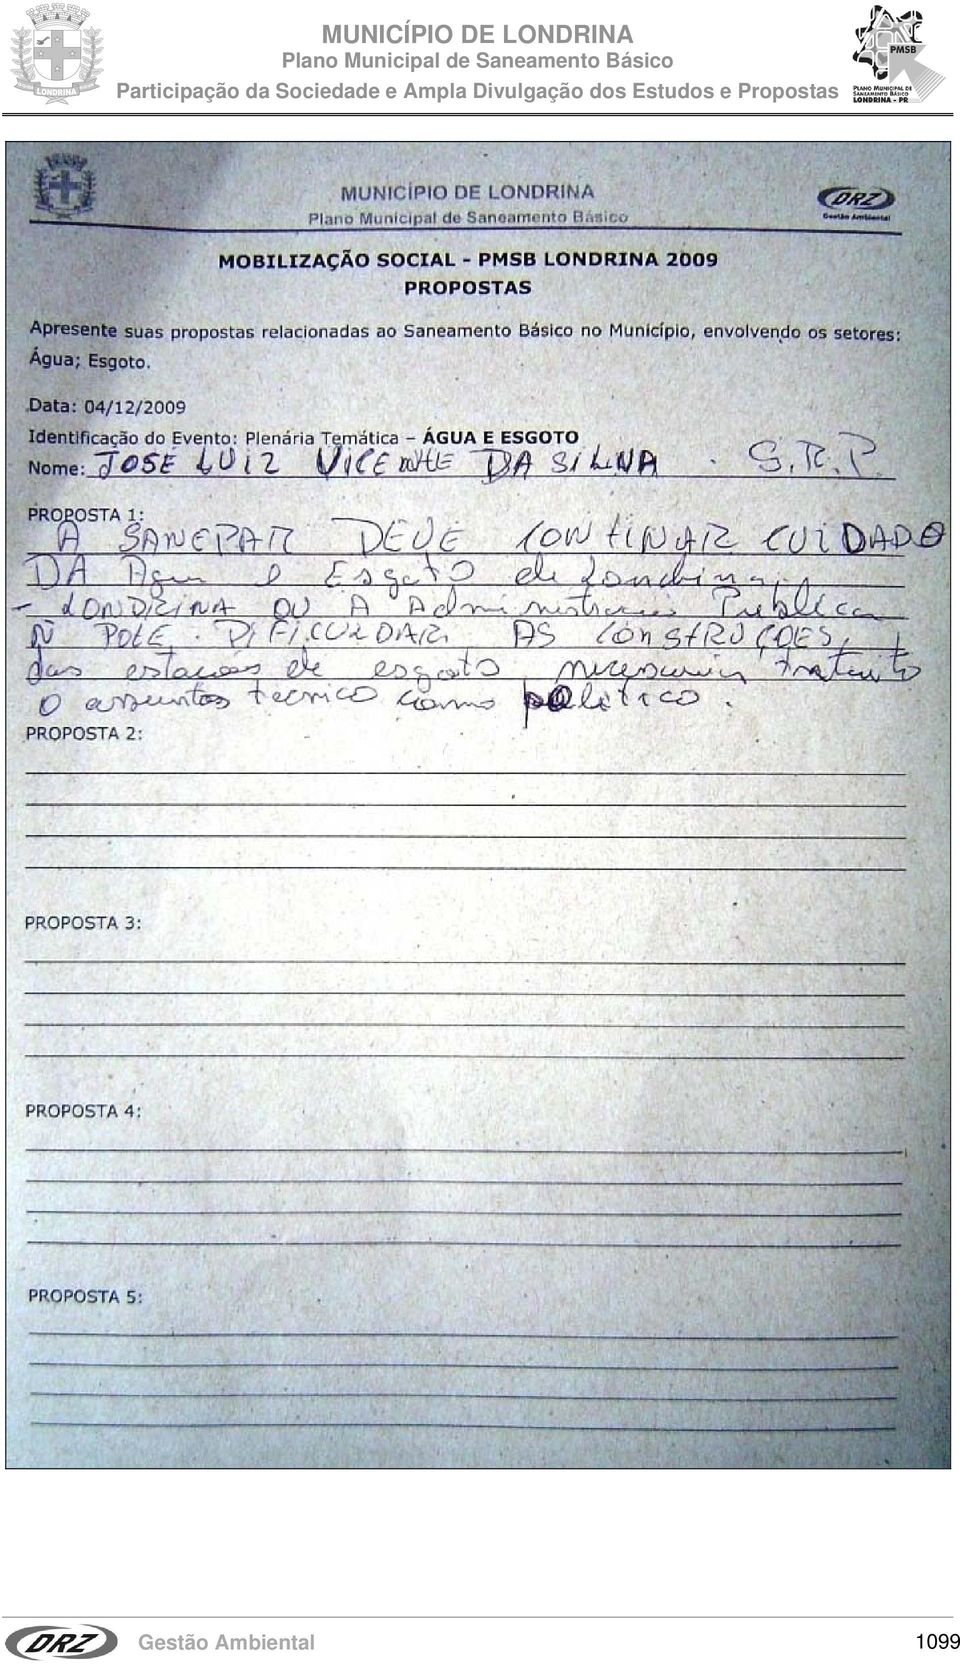 MUNICÍPIO DE LONDRINA
Plano Municipal de Saneamento Básico
Participação da Sociedade e Ampla Divulgação dos Estudos e Propostas
LONDRINA
PMSB
PLANO MUNICIPAL DE
SANEAMENTO BÁSICO
LONDRINA - PR
MUNICÍPIO DE LONDRINA
Plano Municipal de Saneamento Básico
DRZ
Gestão Ambiental
MOBILIZAÇÃO SOCIAL - PMSB LONDRINA 2009
PROPOSTAS
Apresente suas propostas relacionadas ao Saneamento Básico no Município, envolvendo os setores:
Água; Esgoto.
Data: 04/12/2009
Identificação do Evento: Plenária Temática – ÁGUA E ESGOTO
Nome: JOSE LUIZ VICENTE DA SILVA . S.R.P.
PROPOSTA 1:
A SANEPAR DEVE CONTINUAR CUIDADO
DA Agua e Esgoto de Londrina
- LONDRINA OU A Administracao Publica
Ñ PODE . DIFICULDAR AS CONSTRUÇOES,
das estacoes de esgoto tratanto
O assuntos tecnico como politico .
PROPOSTA 2:
PROPOSTA 3:
PROPOSTA 4:
PROPOSTA 5:
DRZ Gestão Ambiental 1099